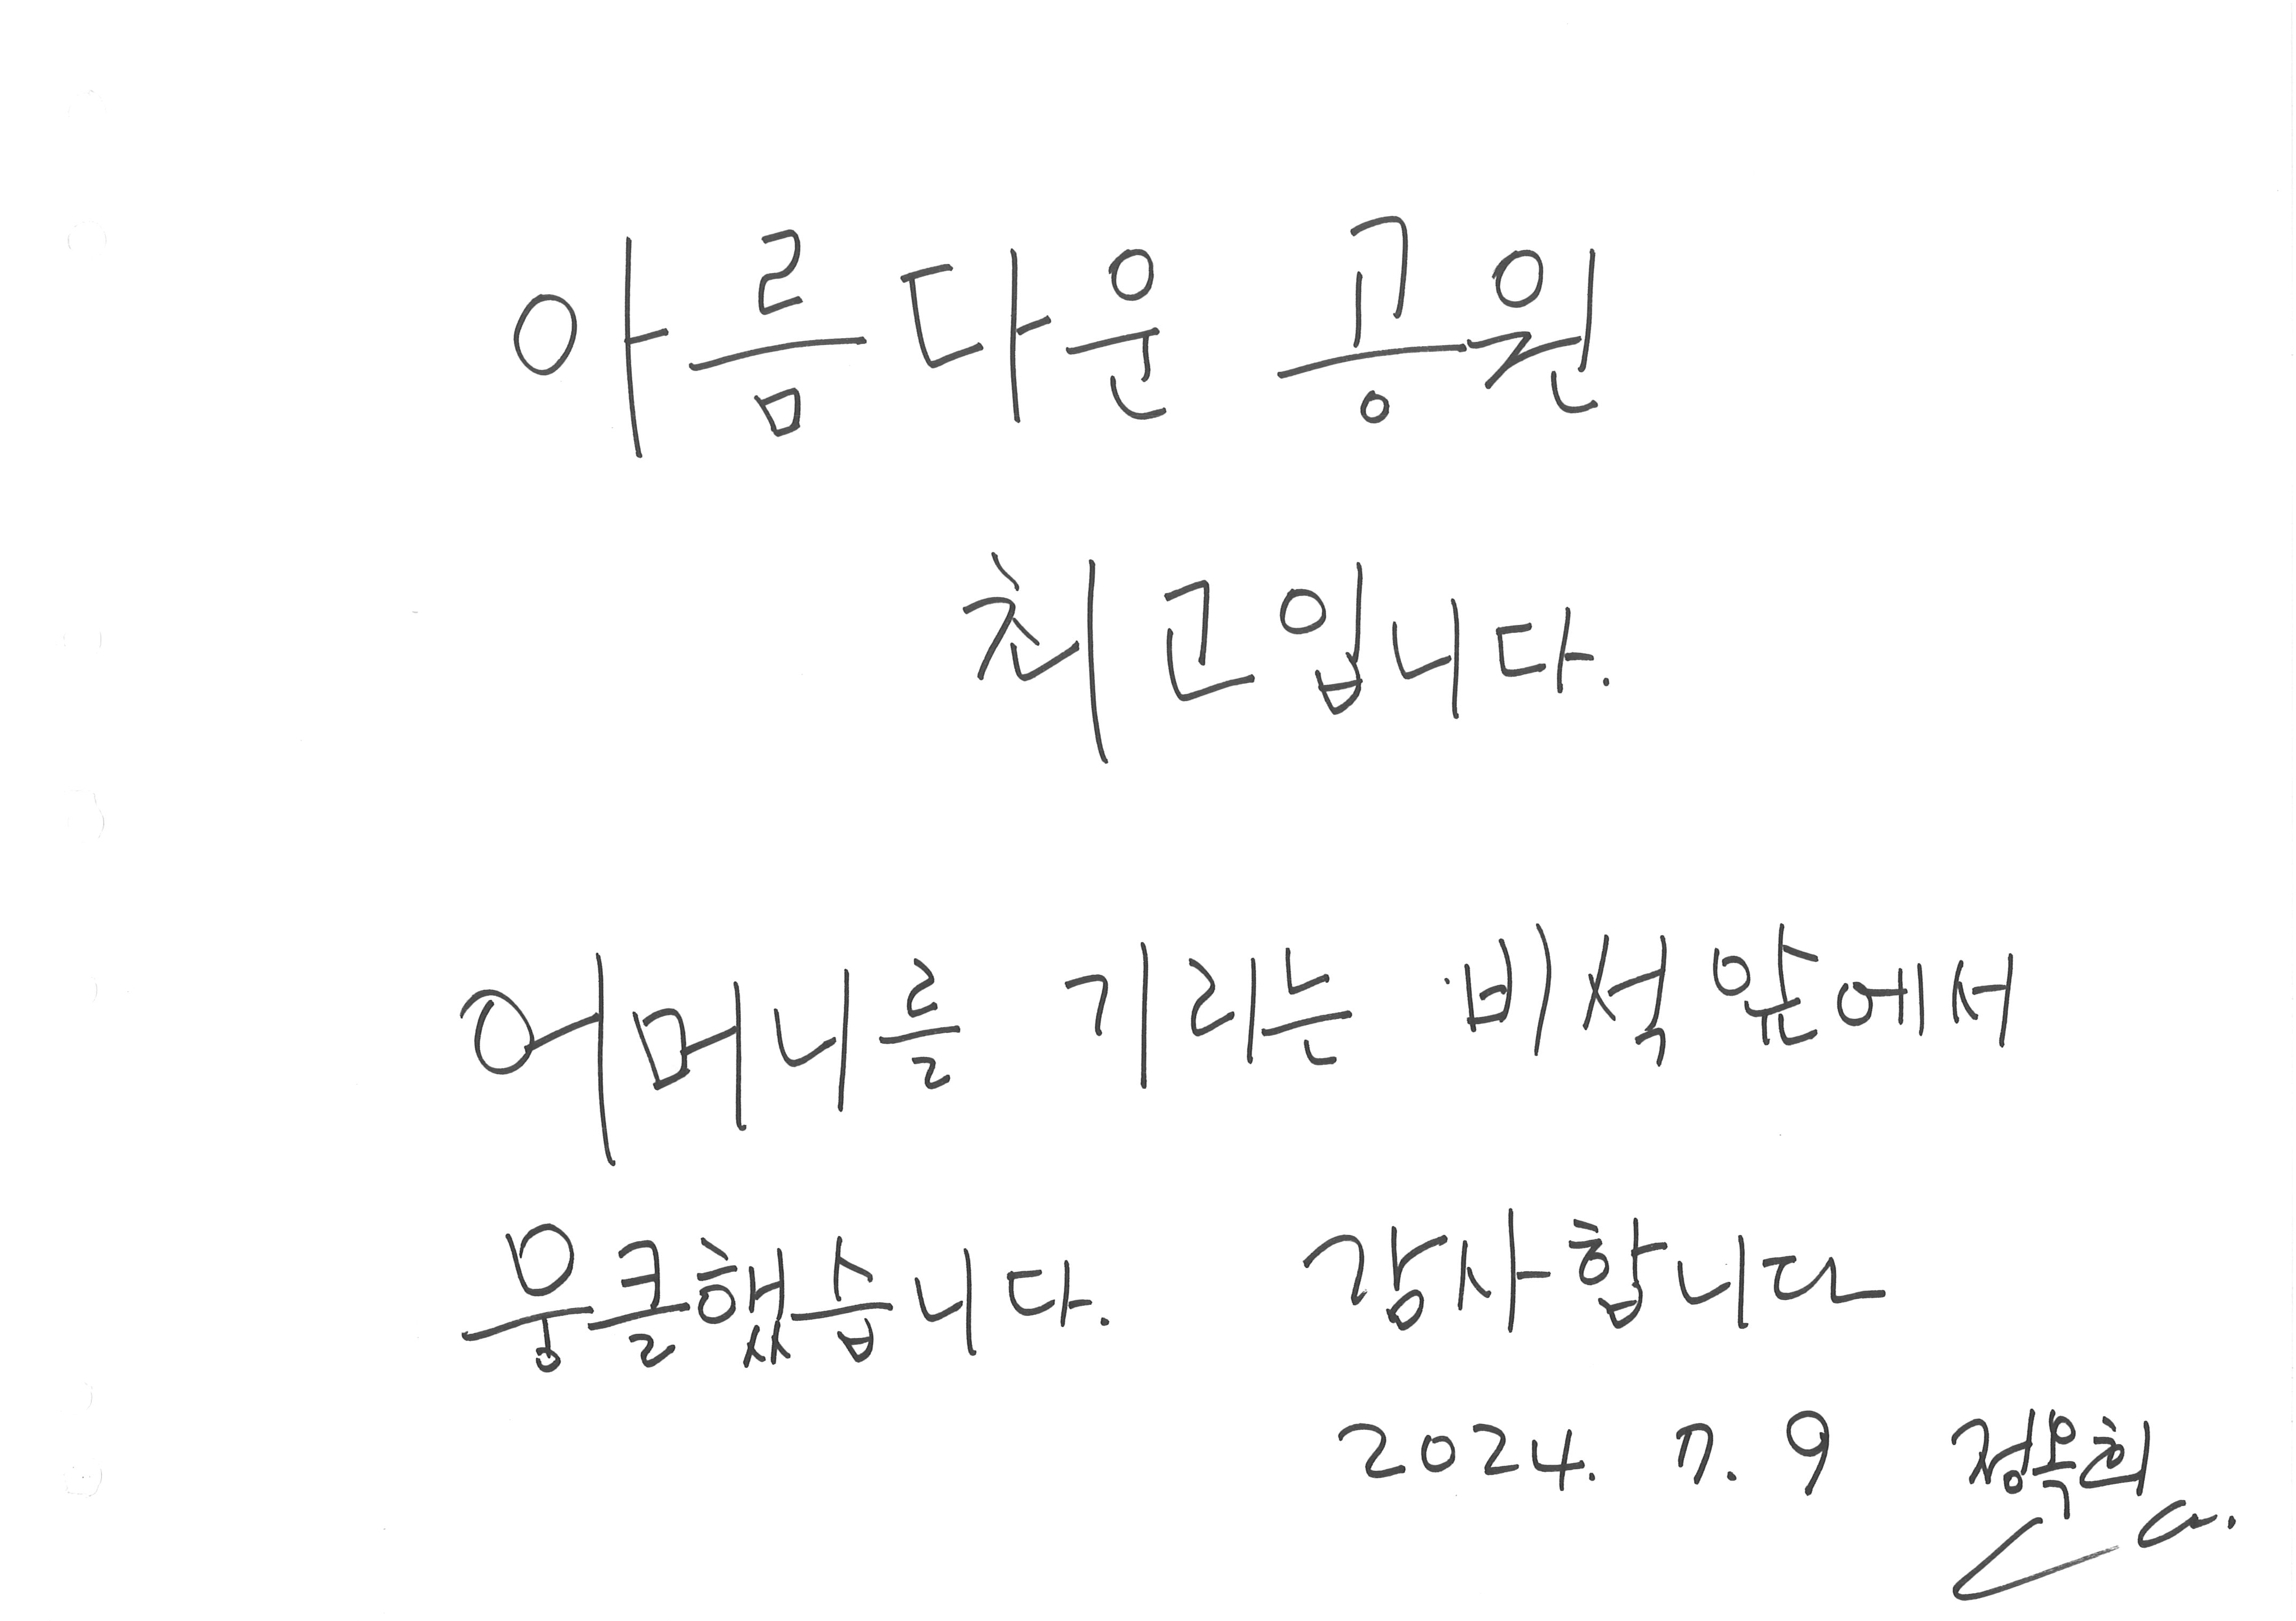 아름다운 공원
최고입니다.
어머니를 기리는 비석 앞에서
뭉클했습니다. 감사합니다
2024. 7. 9 정옥희